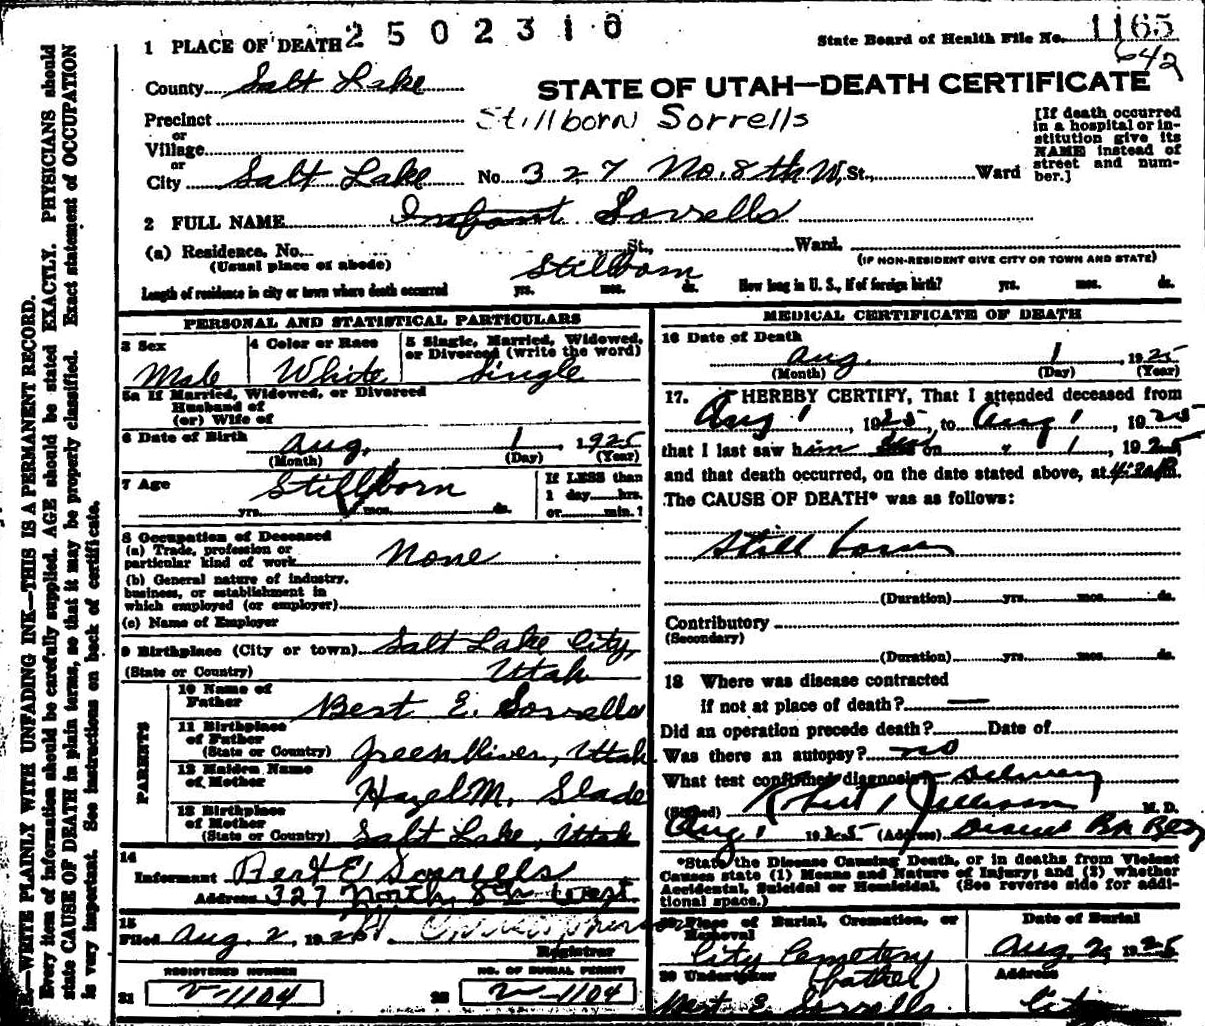 1 PLACE OF DEATH 2502310
State Board of Health File No. 1165
642
County Salt Lake
STATE OF UTAH—DEATH CERTIFICATE
Precinct
Stillborn Sorrells
or
Village
or
City Salt Lake No. 327 No. 8th W. St., Ward
[If death occurred
in a hospital or in-
stitution give its
NAME instead of
street and num-
ber.]
2 FULL NAME Infant Sorrells
(a) Residence, No. St., Ward.
(Usual place of abode)
(IF NON-RESIDENT GIVE CITY OR TOWN AND STATE)
Stillborn
Length of residence in city or town where death occurred yrs. mos. ds. How long in U. S., if of foreign birth? yrs. mos. ds.
PERSONAL AND STATISTICAL PARTICULARS
3 Sex
Male
4 Color or Race
White
5 Single, Married, Widowed,
or Divorced (write the word)
Single
5a If Married, Widowed, or Divorced
Husband of
(or) Wife of
6 Date of Birth Aug. 1, 1925
(Month) (Day) (Year)
7 Age Stillborn
yrs. mos. ds.
If LESS than
1 day hrs.
or min.?
8 Occupation of Deceased
(a) Trade, profession or
particular kind of work None
(b) General nature of industry,
business, or establishment in
which employed (or employer)
(c) Name of Employer
9 Birthplace (City or town) Salt Lake City,
(State or Country) Utah
PARENTS
10 Name of
Father Bert E. Sorrells
11 Birthplace
of Father
(State or Country) Green River, Utah
12 Maiden Name
of Mother Hazel M. Slade
13 Birthplace
of Mother
(State or Country) Salt Lake, Utah
14
Informant Bert E. Sorrells
Address 327 North, 8th West
15
Filed Aug. 2, 1925
Registrar
REGISTERED NUMBER
21 V-1104
NO. OF BURIAL PERMIT
22 V-1104
MEDICAL CERTIFICATE OF DEATH
16 Date of Death
Aug. 1 1925
(Month) (Day) (Year)
17. I HEREBY CERTIFY, That I attended deceased from
Aug 1, 1925, to Aug 1, 1925
that I last saw him on " 1, 1925
and that death occurred, on the date stated above, at 4:20 P.m.
The CAUSE OF DEATH* was as follows:
Still born
(Duration) yrs. mos. ds.
Contributory
(Secondary)
(Duration) yrs. mos. ds.
18 Where was disease contracted
if not at place of death? —
Did an operation precede death? Date of
Was there an autopsy? no
What test confirmed diagnosis? Delivery
(Signed) M. D.
Aug 1 1925 (Address)
*State the Disease Causing Death, or in deaths from Violent
Causes state (1) Means and Nature of Injury; and (2) whether
Accidental, Suicidal or Homicidal. (See reverse side for addi-
tional space.)
19 Place of Burial, Cremation, or
Removal
City Cemetery
Date of Burial
Aug. 2, 1925
20 Undertaker (father)
Bert E. Sorrells
Address
City
WRITE PLAINLY WITH UNFADING INK—THIS IS A PERMANENT RECORD.
Every item of information should be carefully supplied. AGE should be stated EXACTLY. PHYSICIANS should
state CAUSE OF DEATH in plain terms, so that it may be properly classified. Exact statement of OCCUPATION
is very important. See instructions on back of certificate.